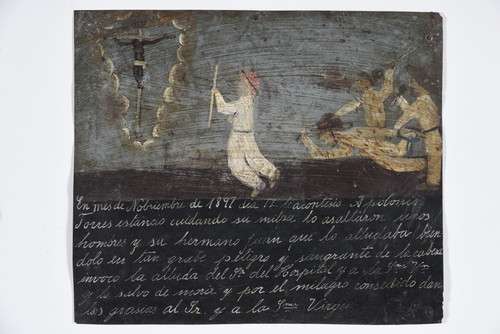 En mes de Nobriembre de 1891 dia 12 le acontesio Apolonio
Torres estanco cuidando su milpa lo asaltaron unos
hombres y su hermano Juan que lo alludaba bien
dolo en tan grabe peligro y sangrante de la cabeza
invoco la alluda del Sr. del Hospital y a la Sma Vn
y lo salvo de morir y por el milagro consedido dan
las grasias al Sr. y a la Sma Virgen